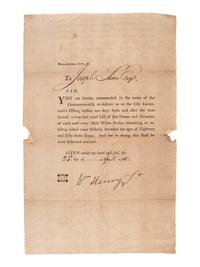 PHILADELPHIA
To Joseph Esq.
SIR,
YOU are hereby commanded, in the name of the
Commonwealth, to deliver to me the City Lieutenant's
Office, within ten days from and after the date
hereof, a true and exact List of the Names and Surnames
of each and every Male White Person inhabiting or residing
within your District, between the ages of Eighteen
and Fifty-three Years. And for so doing, this shall be
your sufficient warrant.
GIVEN under my hand and seal, the
25 day of April 178
Wm Henry